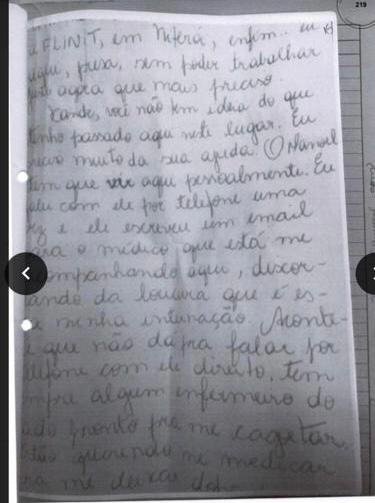 219
a FLINIT, em Niterói, enfim.. eu
aqui, presa, sem poder trabalhar
justo agora que mais preciso.
Xande, você não tem ideia do que
tenho passado aqui neste lugar. Eu
preciso muito da sua ajuda. O Manoel
tem que vir aqui pessoalmente. Eu
falei com ele por telefone uma
vez e ele escreveu um email
para o médico que está me
acompanhando aqui, discor-
dando da loucura que é es-
sa minha internação. Aconte-
ce que não dá pra falar por
telefone com ele direito. Tem
sempre algum enfermeiro do
lado pronto pra me caguetar.
Estão querendo me medicar
pra me deixar